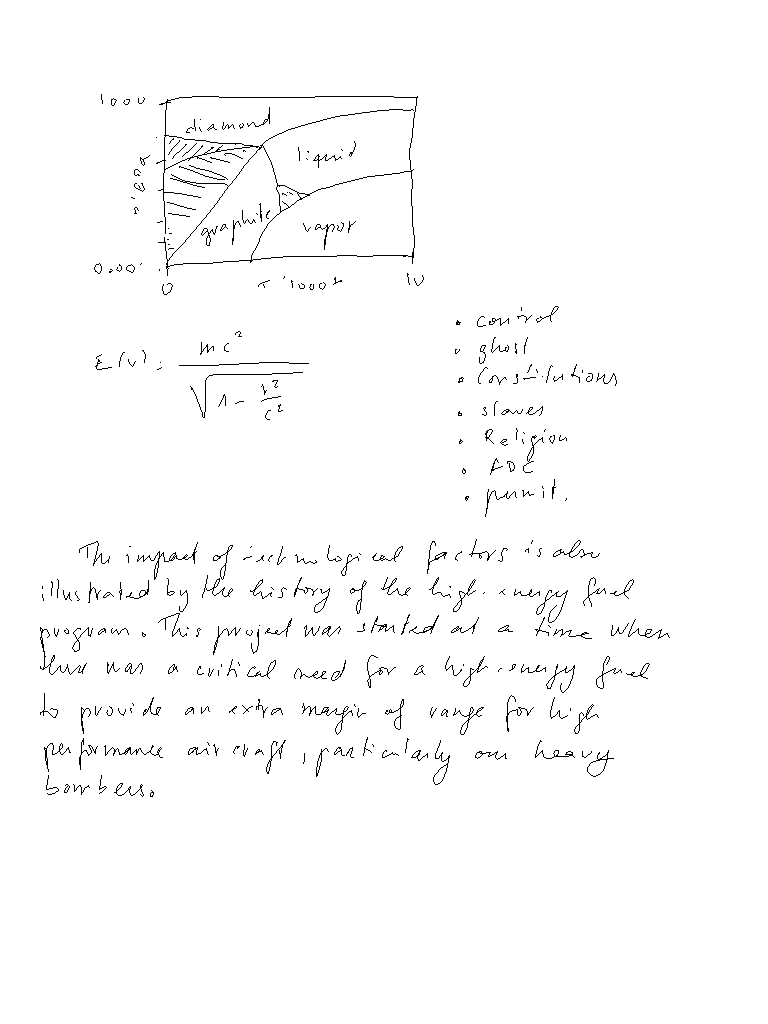 1000
diamond
liquid
graphite
vapor
0.00
0
10
E(v) = mc² / √(1 - v²/c²)
• control
• ghost
• Constitutions
• slaves
• Religion
• ADC
• permit.
The impact of technological factors is also
illustrated by the history of the high-energy fuel
program. This project was started at a time when
there was a critical need for a high-energy fuel
to provide an extra margin of range for high
performance aircraft, particularly our heavy
bombers.